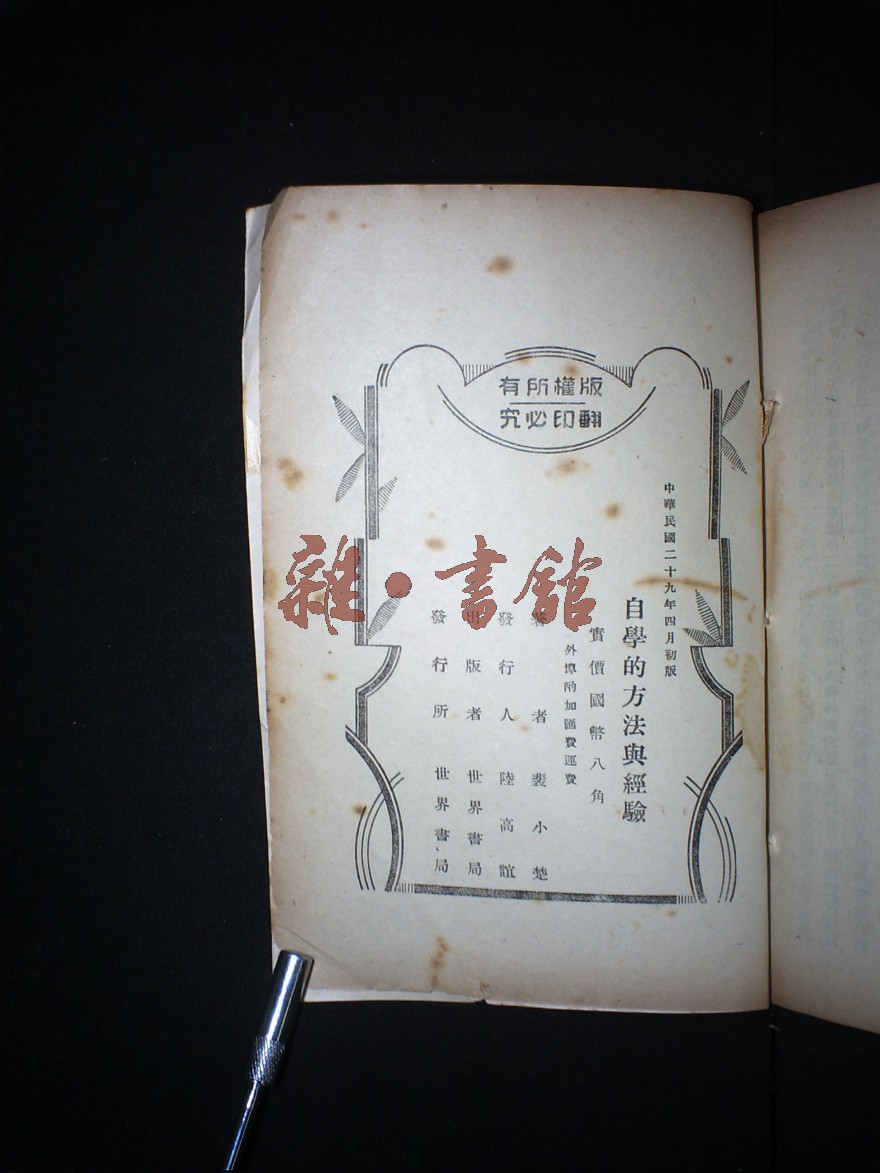 版權所有
翻印必究
中華民國二十九年四月初版
自學的方法與經驗
實價國幣八角
外埠酌加匯費運費
著者 裴小楚
發行人 陸高誼
出版者 世界書局
發行所 世界書局
雜·書館